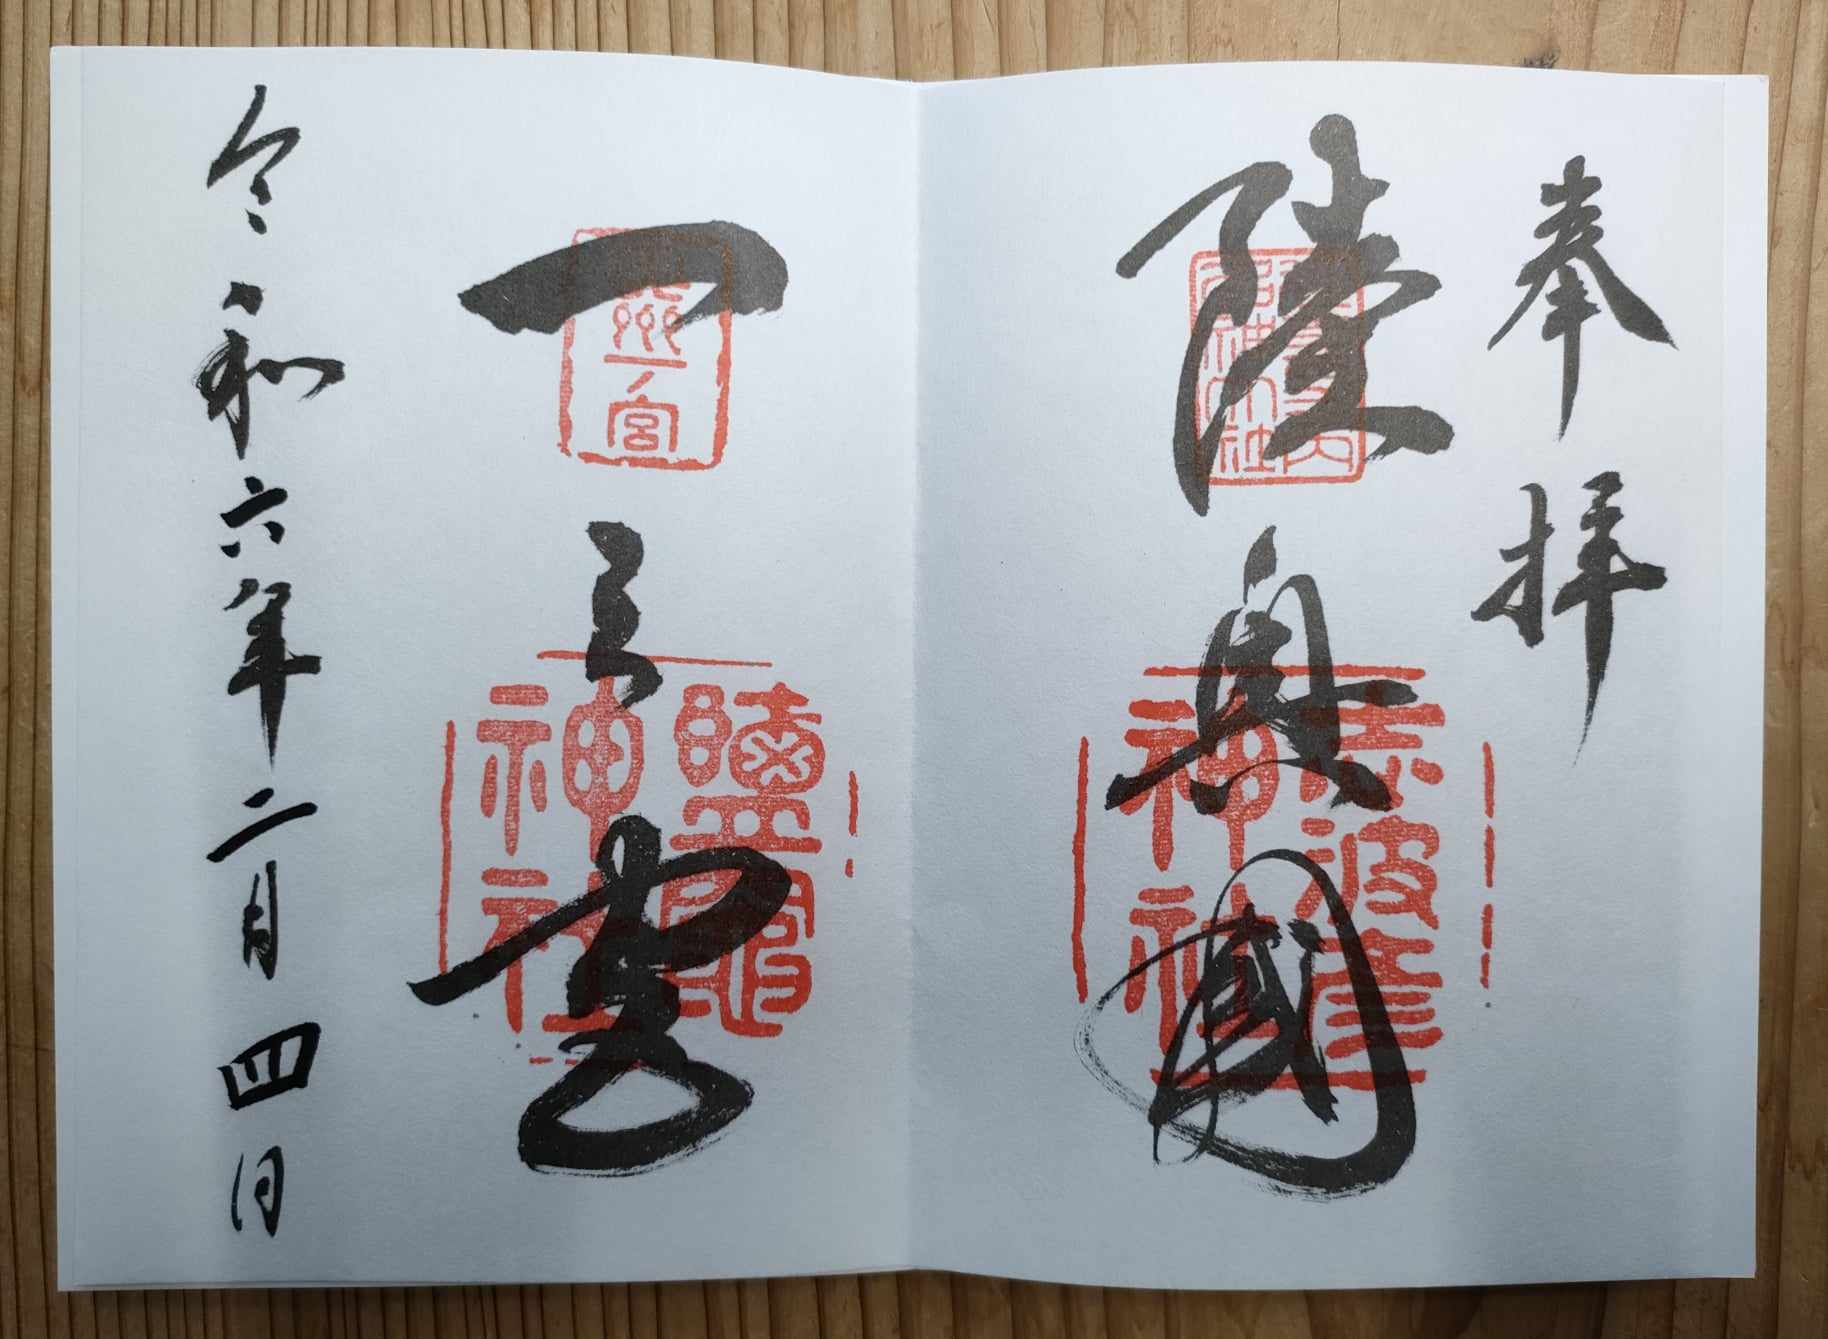 奉拝
陸奥國
志波彦
神社
一之宮
奥州一宮
鹽竈
神社
令和六年二月四日